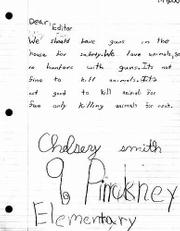 Dear, Editor
We should have guns in the
house for safety. We have animals,
no hunters with guns. It's not
fine to kill animals. It's
not good to kill animals for
fun only killing animals for
Chelsey smith
9 Pinckney
Elementary